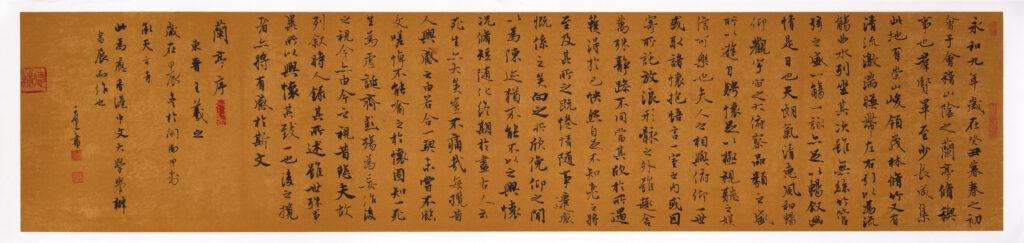 永和九年歲在癸丑暮春之初
會于會稽山陰之蘭亭脩稧
事也羣賢畢至少長咸集
此地有崇山峻領茂林脩竹又有
清流激湍暎帶左右引以為流
觴曲水列坐其次雖無絲竹管
弦之盛一觴一詠亦足以暢敘幽
情是日也天朗氣清惠風和暢
仰觀宇宙之大俯察品類之盛
所以遊目騁懷足以極視聽之娛
信可樂也夫人之相與俯仰一世
或取諸懷抱悟言一室之內或因
寄所託放浪形骸之外雖趣舍
萬殊靜躁不同當其欣於所遇
蹔得於己快然自足不知老之將
至及其所之既惓情隨事遷感
慨係之矣向之所欣俛仰之間
以為陳迹猶不能不以之興懷
況脩短隨化終期於盡古人云
死生亦大矣豈不痛哉每攬昔
人興感之由若合一契未嘗不臨
文嗟悼不能喻之於懷固知一死
生為虛誕齊彭殤為妄作後
之視今亦由今之視昔悲夫故
列敘時人錄其所述雖世殊事
異所以興懷其致一也後之攬
者亦將有感於斯文
蘭亭序
東晉王羲之
歲在甲辰冬於閩南
承天寺
此為應香港中文大學
書展而作也